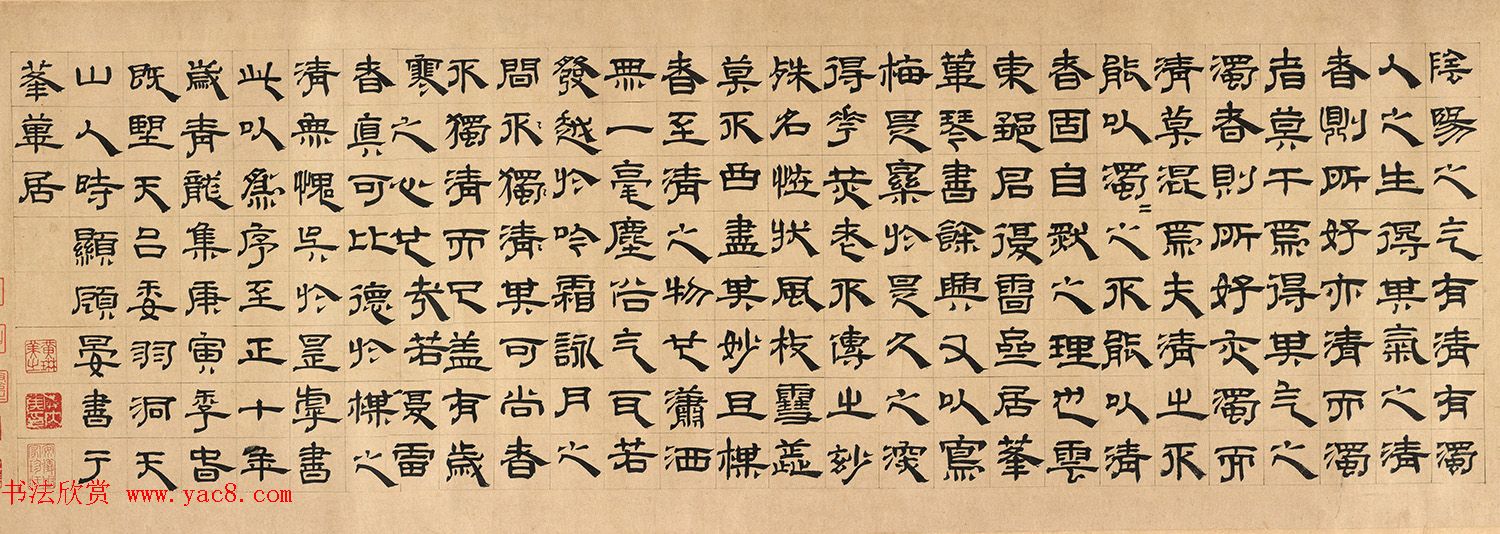 陰陽之气有清有濁
人之生得其氣之清
者則所好亦清而濁
者莫干焉得其气之
濁者則所好亦濁而
清莫混焉夫清之不
能以濁〻之不能以清
者固自然之理也雲
東鄒君復雷嵒居峯
蓽琴書餘興又以寫
梅是於是久之深
得花光老不傳之妙
殊名恠狀風枝雪蕊
莫不曲盡其妙且楳
者至清之物也瀟洒
無一毫塵俗气若
發越於吟霜詠月之
間不獨清其可尚者
不獨清而已蓋有歲
寒之心也哉若復雷
者真可比德於楳之
清無愧矣於是虖書
此以為序至正十年
歲青龍集庚寅季春
既望天台委羽洞天
山人時顯顧晏書于
峯蓽居
书法欣赏 www.yac8.com